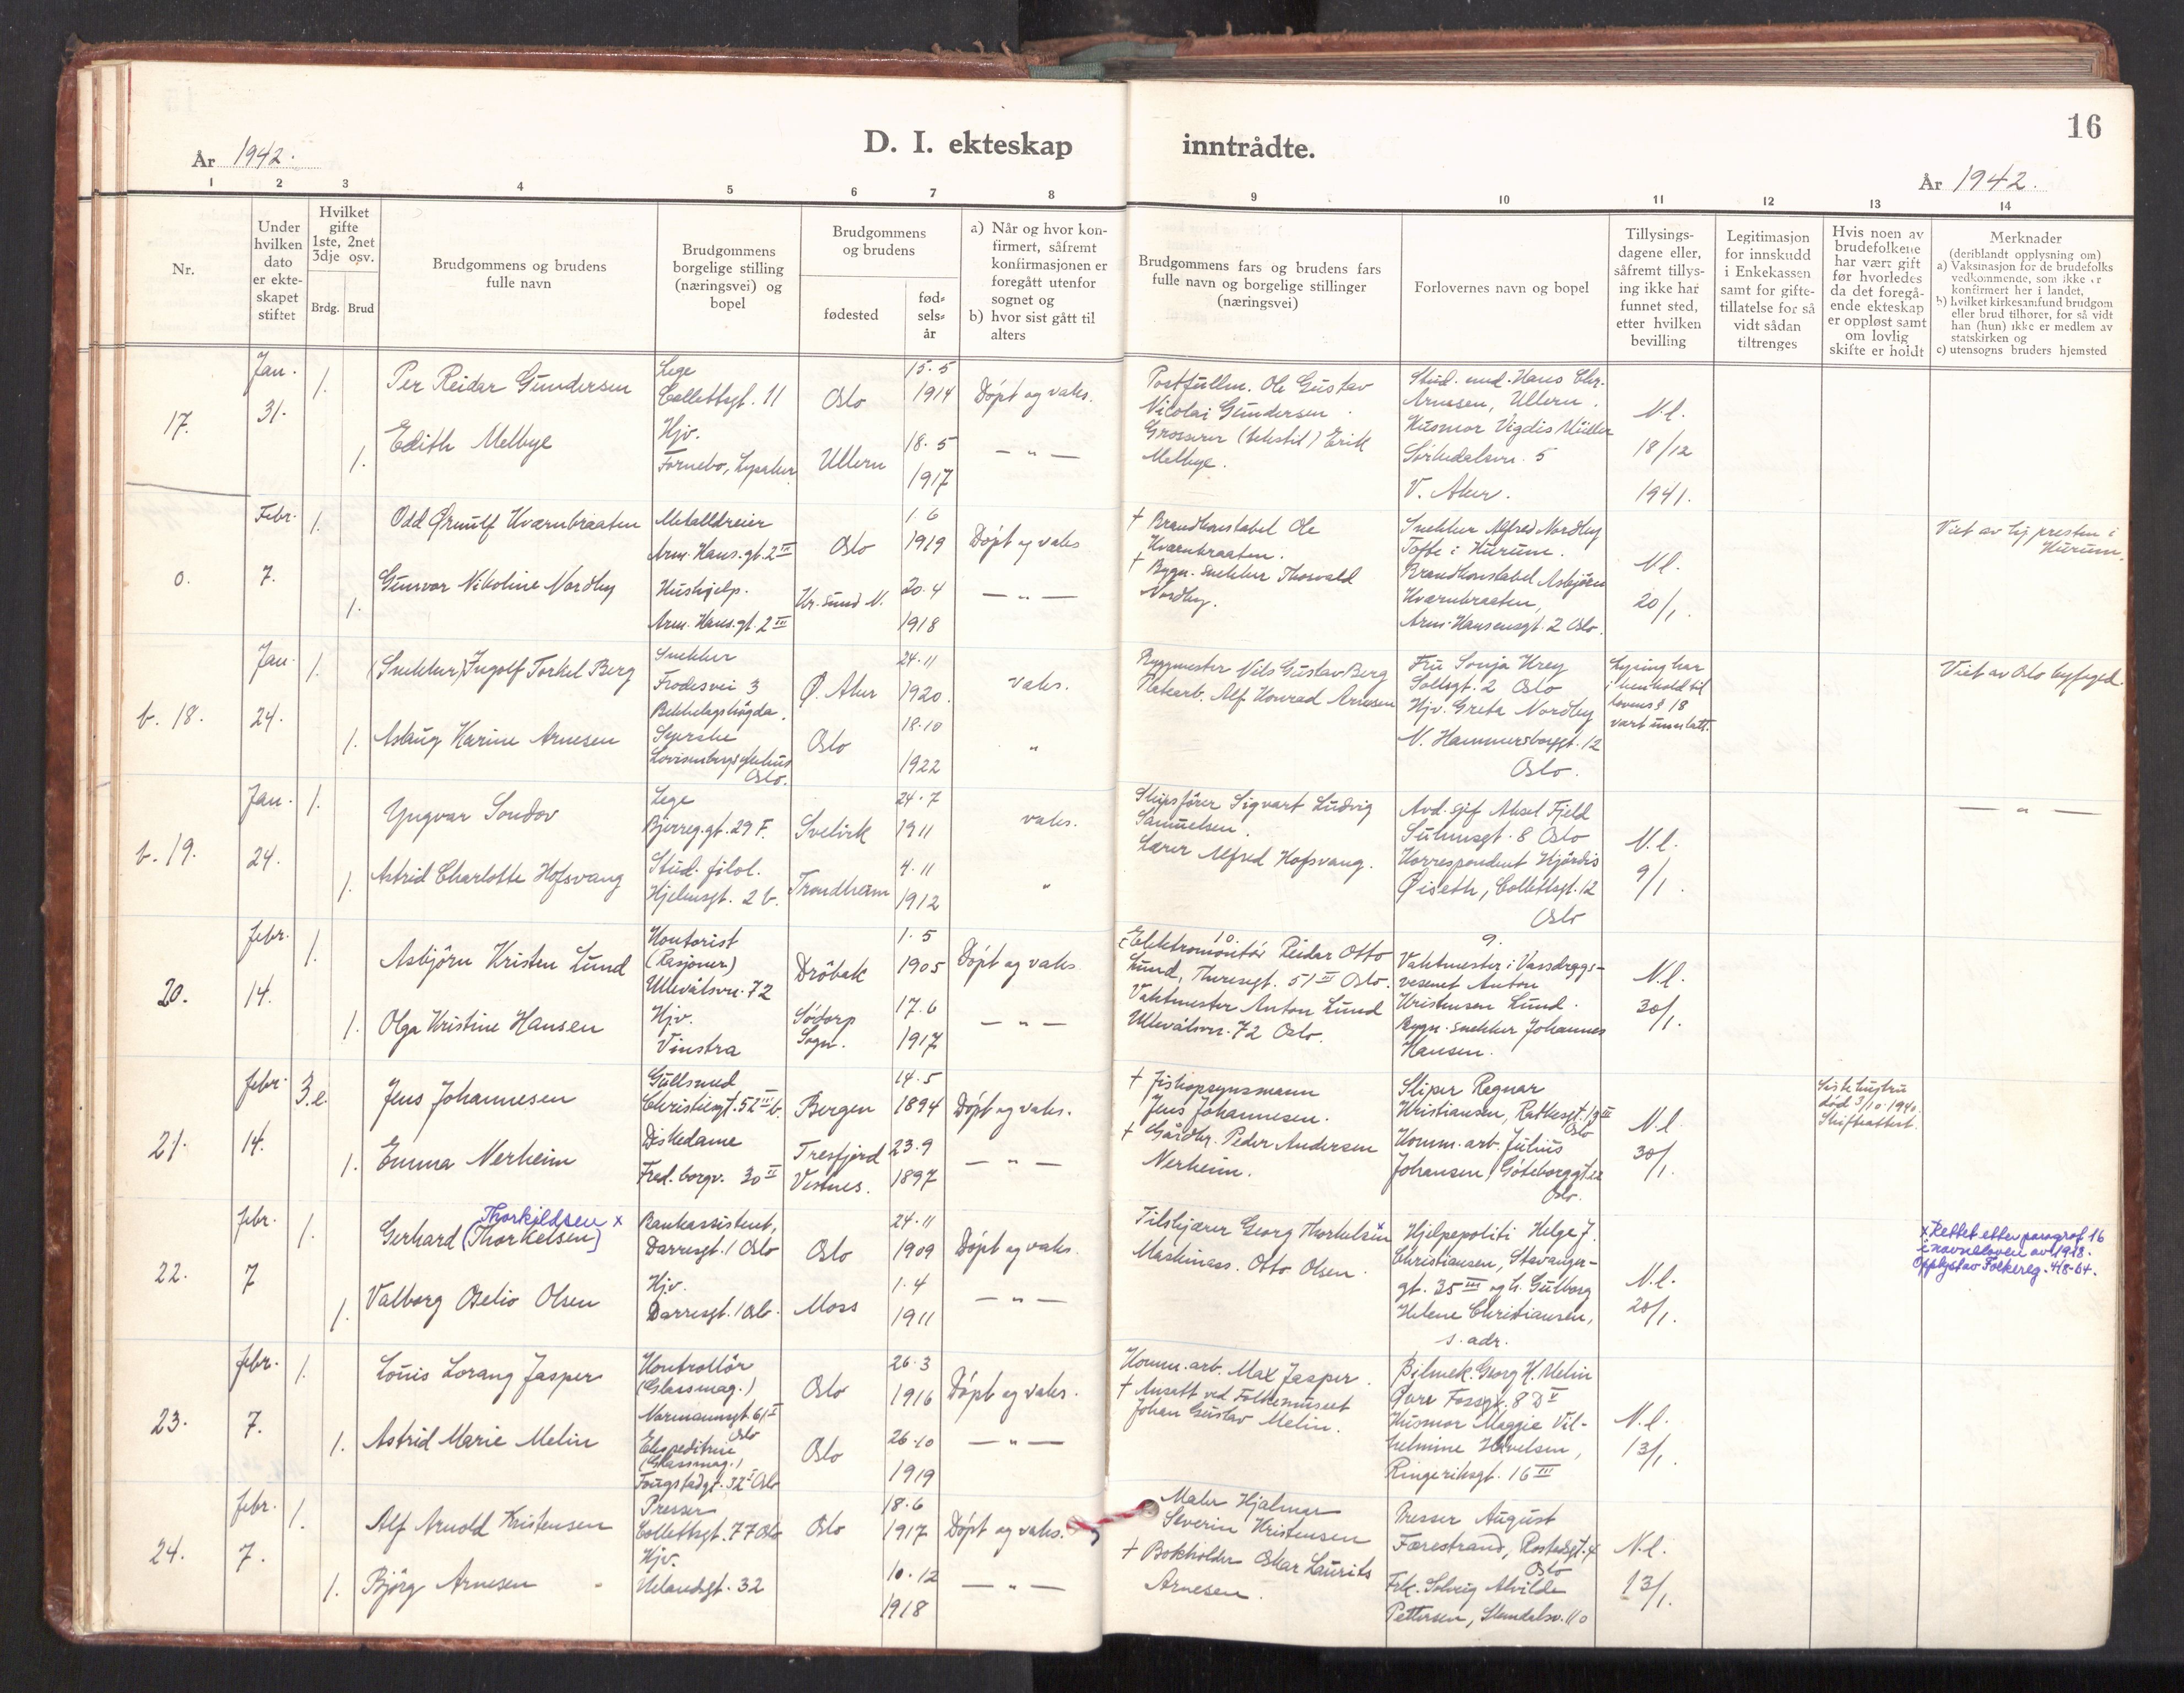 16
D. I. ekteskap inntrådte.
År 1942.
År 1942.
1 2 3 4 5 6 7 8 9 10 11 12 13 14
Nr.
Under hvilken dato er ekteskapet stiftet
Hvilket gifte 1ste, 2net 3dje osv.
Brdg. Brud
Brudgommens og brudens fulle navn
Brudgommens borgelige stilling (næringsvei) og bopel
Brudgommens og brudens
fødested
fødselsår
a) Når og hvor konfirmert, såfremt konfirmasjonen er foregått utenfor sognet og
b) hvor sist gått til alters
Brudgommens fars og brudens fars fulle navn og borgelige stillinger (næringsvei)
Forlovernes navn og bopel
Tillysingsdagene eller, såfremt tillysing ikke har funnet sted, etter hvilken bevilling
Legitimasjon for innskudd i Enkekassen samt for giftetillatelse for så vidt sådan tiltrenges
Hvis noen av brudefolkene har vært gift før hvorledes da det foregående ekteskap er oppløst samt om lovlig skifte er holdt
Merknader
(deriblandt opplysning om)
a) Vaksinasjon for de brudefolks vedkommende, som ikke er konfirmert her i landet,
b) hvilket kirkesamfund brudgom eller brud tilhører, for så vidt han (hun) ikke er medlem av statskirken og
c) utensogns bruders hjemsted
17.
Jan. 31.
1.
Per Reidar Gundersen
Lege
Collettsgt. 11
Oslo
15.5 1914
Døpt og vaks.
Postfullm. Ole Gustav
Nicolai Gundersen.
Stud. med. Hans Chr.
Arnesen, Ullern.
1.
Edith Melbye
Hjv.
Fornebo, Lysaker
Ullern
18.5 1917
— " —
Grosserer (tekstil) Erik
Melbye.
Husmor Vigdis Müller
Sørkedalsvn. 5
V. Aker.
N.l.
18/12
1941.
0.
Febr. 7.
1.
Odd Ørnulf Kværnbraaten
Metalldreier
Arm. Hans. gt. 2 III
Oslo
1.6 1919
Døpt og vaks
† Brandkonstabel Ole
Kværnbraaten.
Snekker Alfred Nordby
Tofte i Hurum.
1.
Gunvor Nikoline Nordby
Hushjelp.
Arm. Hans. gt. 2 III
Kr. sund N.
20.4 1918
— " —
† Bygn. snekker Thorvald
Nordby.
Brandkonstabel Asbjørn
Kværnbraaten,
Arm. Hansensgt. 2 Oslo.
N.l.
20/1.
Viet av hj. presten i
Hurum.
b. 18.
Jan. 24.
1.
(Snekker) Ingolf Torkel Berg
Snekker
Frodesvei 3
Bekkelagshøgda.
Ø. Aker
24.11 1920.
vaks.
Byggmester Nils Gustav Berg
Fru Sonja Krey
Sollsgt. 2 Oslo
1.
Aslaug Karine Arnesen
Lovisenberg sykehus
Oslo.
Oslo
18.10 1922
"
Platearb. Alf Konrad Arnesen
Hjv. Greta Nordby
N. Hammersborggt. 12
Oslo.
Lysing har
i henhold til
lovens § 18
vært unnlatt.
Viet av Oslo byfoged.
b. 19.
Jan. 24.
1.
Yngvar Sondov
Lege
Bjerreg.gt. 29 F.
Svelvik
24.7 1911
vaks.
Skipsfører Sigvart Ludvig
Samuelsen.
Avd. sjef Aksel Fjeld
Suhmsgt. 8 Oslo
1.
Astrid Charlotte Hofsvang
Stud. filol.
Hjelmsgt. 2 b.
Trondheim
4.11 1912
"
Lærer Alfred Hofsvang.
Korrespondent Hjørdis
Øiseth, Collettsgt. 12
Oslo
N.l.
9/1.
— " —
20.
febr. 14.
1.
Asbjørn Kristen Lund
Kontorist
(Rasjoner.)
Ullevålsvn. 72
Drøbak
1.5 1905
Døpt og vaks
10.
Elektromontør Reidar Otto
Lund, Theresegt. 51 III Oslo.
9.
Vaktmester i Vassdragsvesenet Anton
Kristensen Lund.
1.
Olga Kristine Hansen
Hjv.
Vinstra
Sødorp
Sogn.
17.6 1917
— " —
Vaktmester Anton Lund
Ullevålsvn. 72 Oslo.
Bygn. snekker Johannes
Hansen.
N.l.
30/1.
21.
febr. 14.
3.e
Jens Johannesen
Gullsmed
Christiesgt. 52 III b.
Bergen
14.5 1894
Døpt og vaks.
† Fiskopsynsmann
Jens Johannesen.
Sliper Ragnar
Kristiansen, Rathkesgt. 19 III
Oslo
1.
Emma Nerheim
Diskedame
Fred. borgv. 30 II
Tresfjord
Vestnes.
23.9 1897
— " —
† Gårdbr. Peder Andersen
Nerheim.
Komm. arb. Julius
Johansen, Göteborggt. 22
Oslo.
N.l.
30/1.
Siste hustru
død 3/10-1940.
Skifteattest.
22.
febr. 7
1.
Thorkildsen x
Gerhard (Thorkelsen)
Bankassistent,
Darresgt. 1 Oslo
Oslo
24.11 1909
Døpt og vaks.
Tilskjærer Georg Thorkelsen x
Hjelpepoliti Helge J.
Christiansen, Stavangergt. 35 III og h. Gulborg
Helene Christiansen,
s. adr.
1.
Valborg Oselio Olsen
Hjv.
Darresgt. 1 Oslo.
Moss
1.4 1911
— " —
Maskinass. Otto Olsen.
N.l.
20/1.
x Rettet etter paragraf 16
i navneloven av 1918.
Opplyst av Folkereg. 4/8-64.
23.
febr. 7.
1.
Louis Lorang Jasper
Kontrollør
(Glassmag.)
Normannsgt. 61 I
Oslo
Oslo
26.3 1916
Døpt og vaks.
Komm. arb. Max Jasper.
Bilmek. Georg H. Melin
Øvre Fossgt. 8 D V
1.
Astrid Marie Melin
Ekspeditrise
(Glassmag.)
Fougstadgt. 32 I Oslo
Oslo
26.10 1919
— " —
† Ansatt ved Folkemuseet
Johan Gustav Melin.
Husmor Maggie Vilhelmine Havelsen,
Ringeriksgt. 16 III
N.l.
13/1.
24.
febr. 7.
1.
Alf Arnold Kristensen
Presser
Collettsgt. 77 Oslo
Oslo
18.6 1917
Døpt og vaks.
Maler Hjalmar
Severin Kristensen
Presser August
Færestrand, Rostedsgt. 4
Oslo
1.
Bjørg Arnesen
Hjv.
Uelandsgt. 32
10.12 1918
— " —
† Bokholder Oskar Laurits
Arnesen.
Frk. Solveig Alvilde
Pettersen
N.l.
13/1.